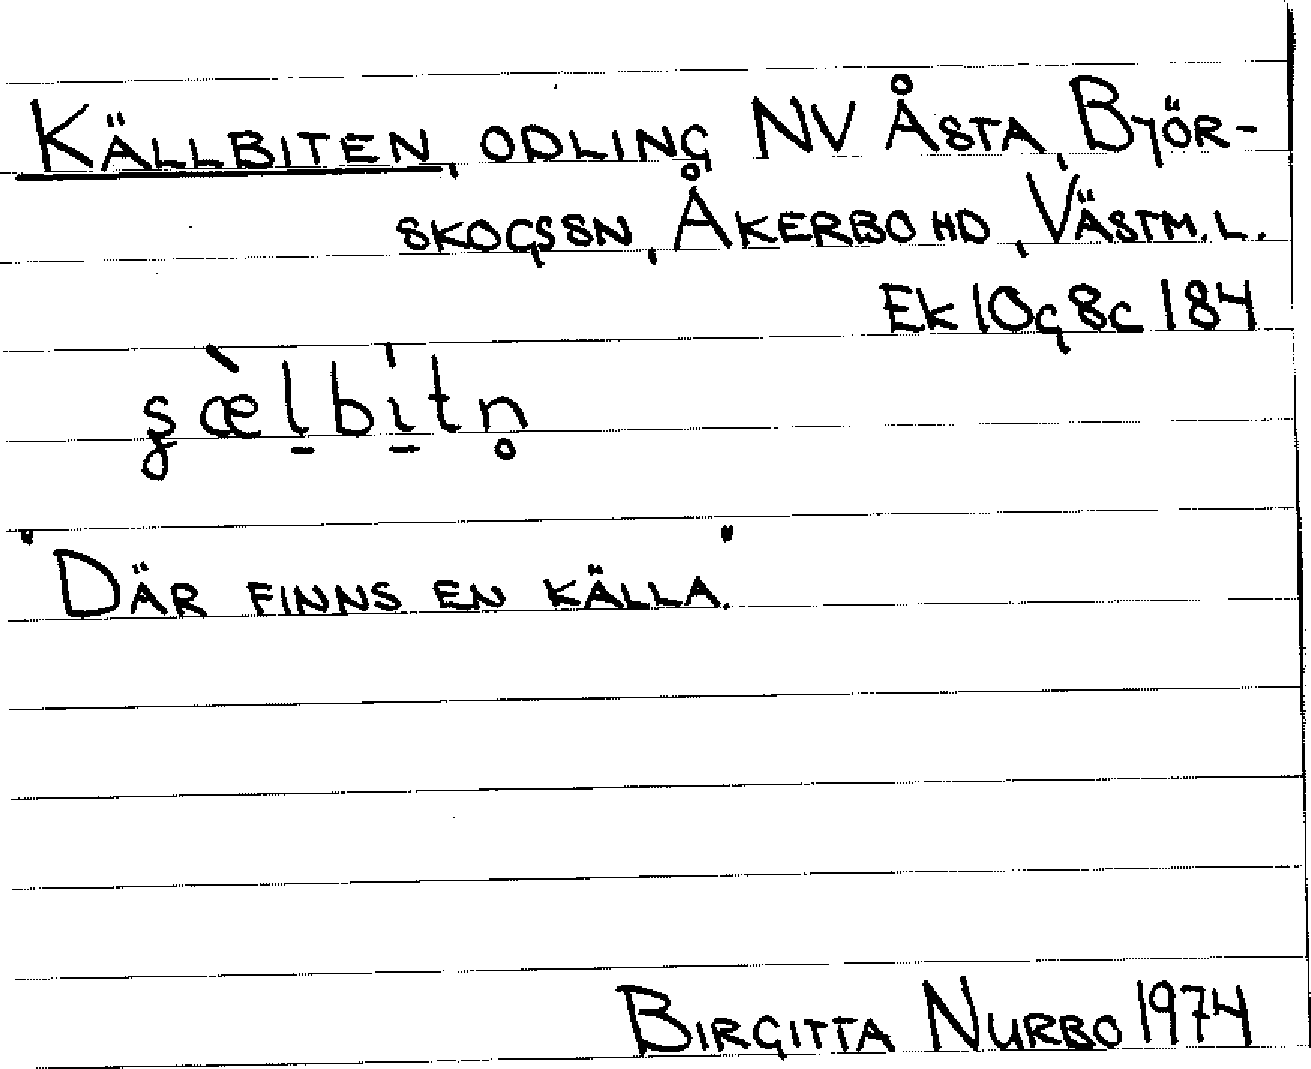 KÄLLBITEN, ODLING NV ÅSTA, BJÖR-
SKOGSSN, ÅKERBO HD, VÄSTM. L.
EK 10g 8c 184
"DÄR FINNS EN KÄLLA."
BIRGITTA NURBO 1974